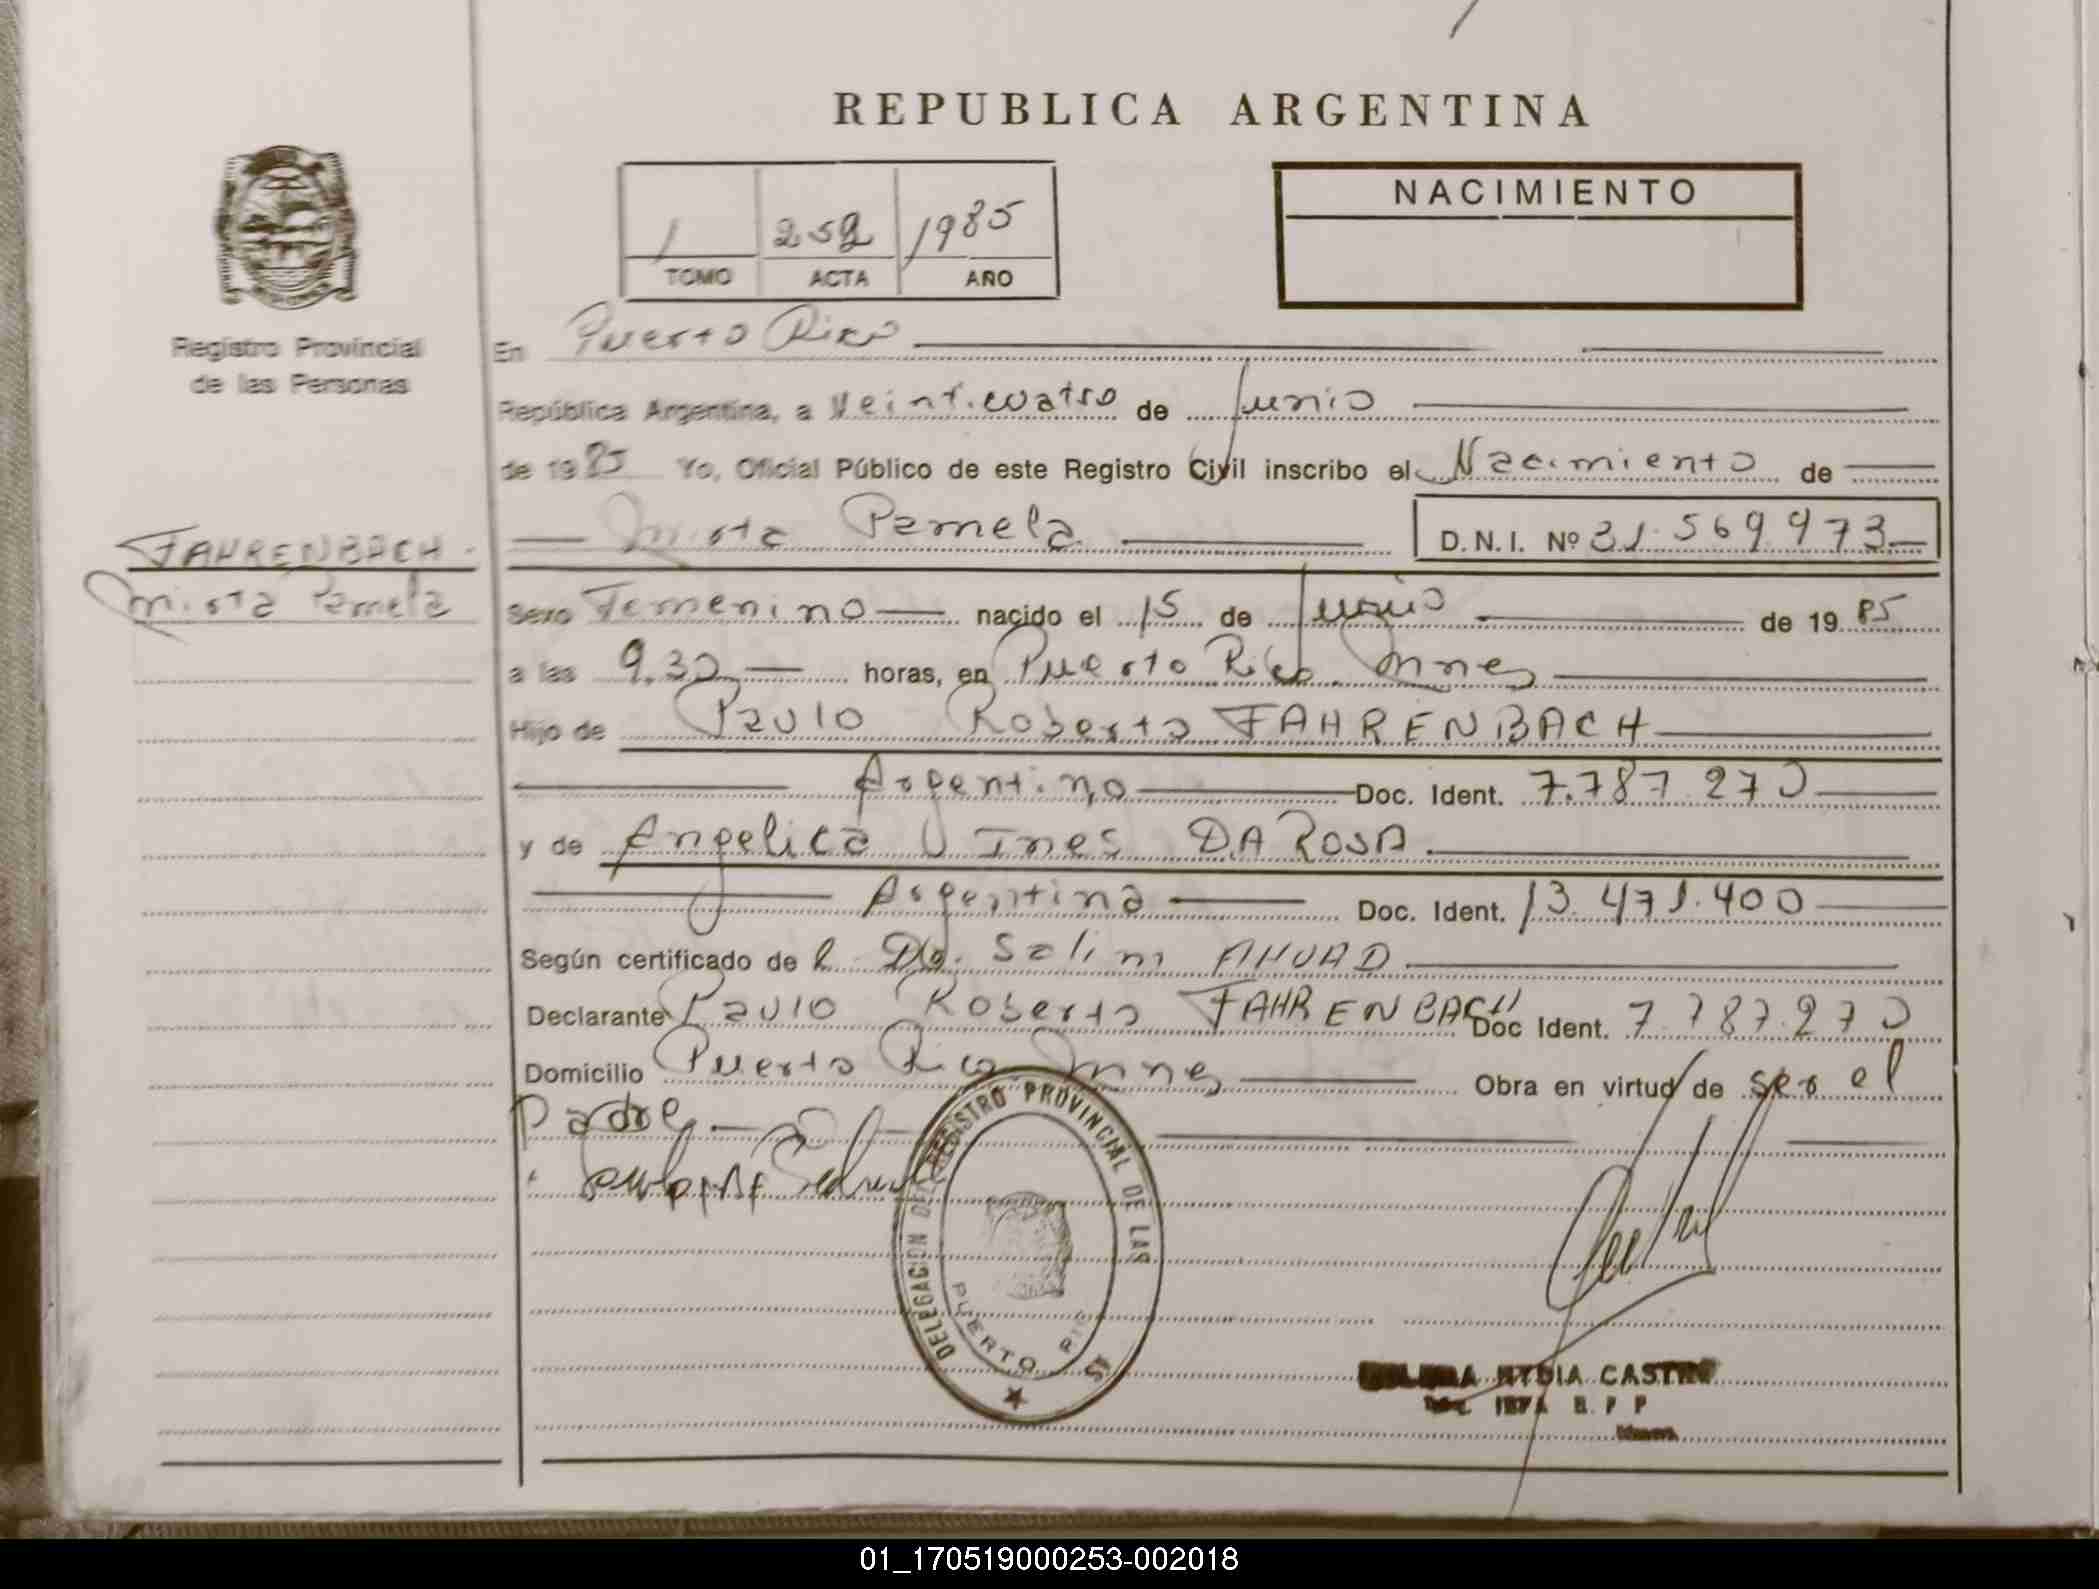 REPUBLICA ARGENTINA
NACIMIENTO
1 252 1985
TOMO ACTA AÑO
Registro Provincial
de las Personas
En Puerto Rico
República Argentina, a Veinticuatro de Junio
de 1985 Yo, Oficial Público de este Registro Civil inscribo el Nacimiento de
Mirta Pamela D.N.I. Nº 31.569.973
FAHRENBACH
Mirta Pamela
Sexo Femenino nacido el 15 de Junio de 1985
a las 9,30 horas, en Puerto Rico Mnes
Hijo de Paulo Roberto FAHRENBACH
Argentino Doc. Ident. 7.787.270
y de Angelica Ines DA ROSA
Argentina Doc. Ident. 13.471.400
Según certificado del Dr. Salim AHUAD
Declarante Paulo Roberto FAHRENBACH Doc Ident. 7.787.270
Domicilio Puerto Rico Mnes Obra en virtud de ser el
Padre
DELEGACION DEL REGISTRO PROVINCIAL DE LAS
PUERTO
NYDIA CASTRO
01_170519000253-002018